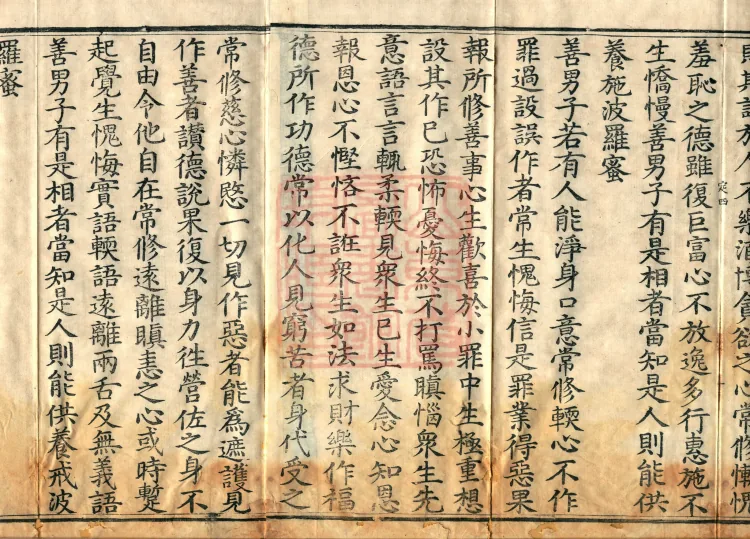 人不樂酒博貪欲之心常修慚愧
羞恥之德雖復巨富心不放逸多行惠施不
生憍慢善男子有是相者當知是人則能供
養施波羅蜜
善男子若有人能淨身口意常修輭心不作
罪過設誤作者常生愧悔信是罪業得惡果
報所修善事心生歡喜於小罪中生極重想
設其作已恐怖憂悔終不打罵瞋惱衆生先
意語言言輒柔輭見衆生已生愛念心知恩
報恩心不慳悋不誑衆生如法求財樂作福
德所作功德常以化人見窮苦者身代受之
常修慈心憐愍一切見作惡者能爲遮護見
作善者讚德說果復以身力往營佐之身不
自由令他自在常修遠離瞋恚之心或時暫
起覺生愧悔實語輭語遠離兩舌及無義語
善男子有是相者當知是人則能供養戒波
羅蜜